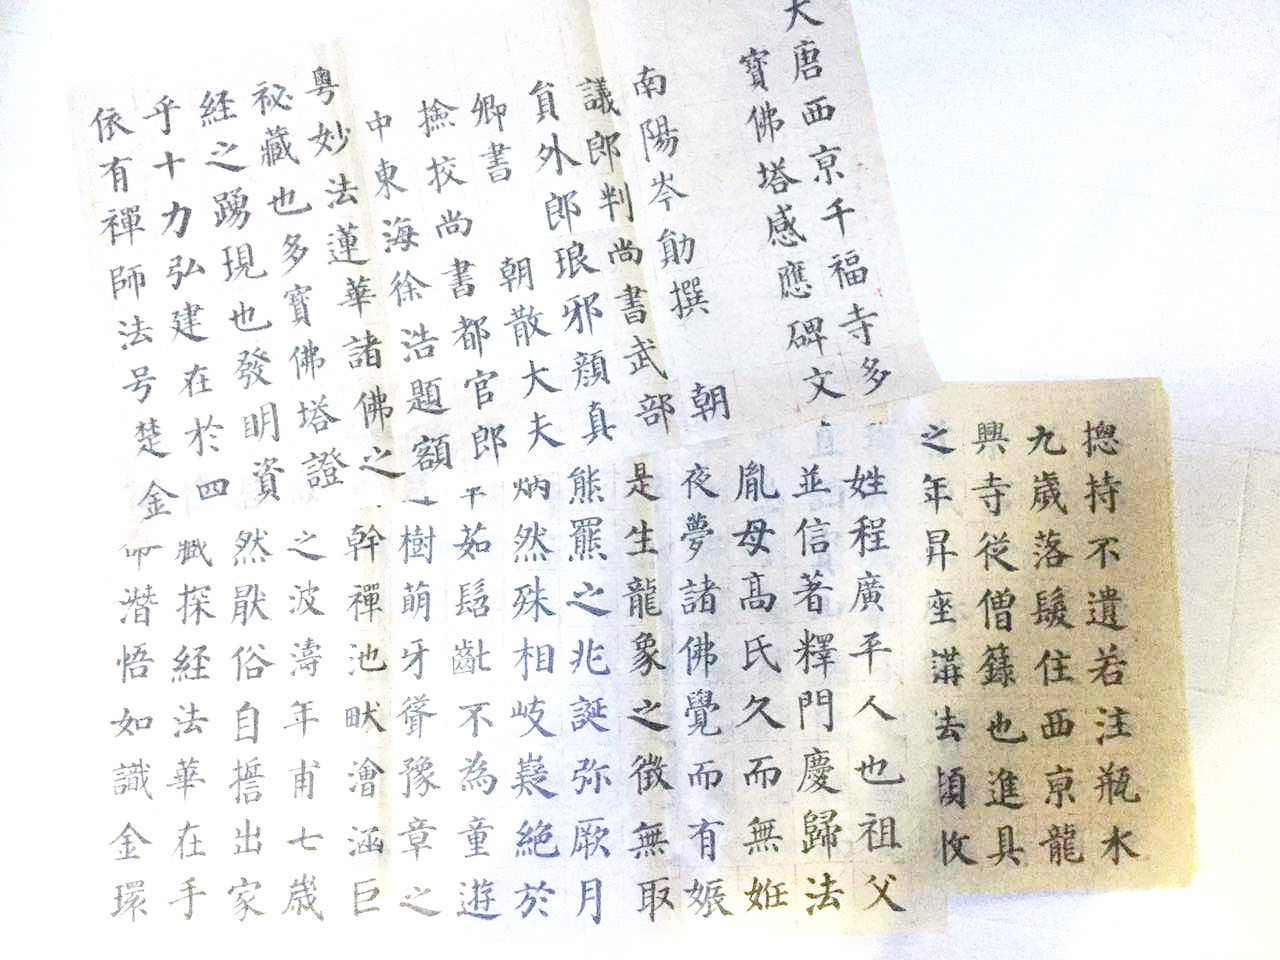 大唐西京千福寺多
寶佛塔感應碑文
南陽岑勛撰 朝
議郎判尚書武部
員外郎琅邪顏真
卿書 朝散大夫
撿挍尚書都官郎
中東海徐浩題額
粵妙法蓮華諸佛之
祕藏也多寶佛塔證
経之踴現也發明資
乎十力弘建在於四
依有禪師法号楚金
姓程廣平人也祖父
並信著釋門慶歸法
胤母髙氏久而無姙
夜夢諸佛覺而有娠
是生龍象之徵無取
熊羆之兆誕弥厥月
炳然殊相岐嶷絶於
茹髫齔不為童遊
樹萌牙聳豫章之
幹禪池畎澮涵巨
之波濤年甫七歳
然猒俗自誓出家
藏探経法華在手
命潛悟如識金環
揔持不遺若注瓶水
九歲落髮住西京龍
興寺從僧籙也進具
之年昇座講法頓收